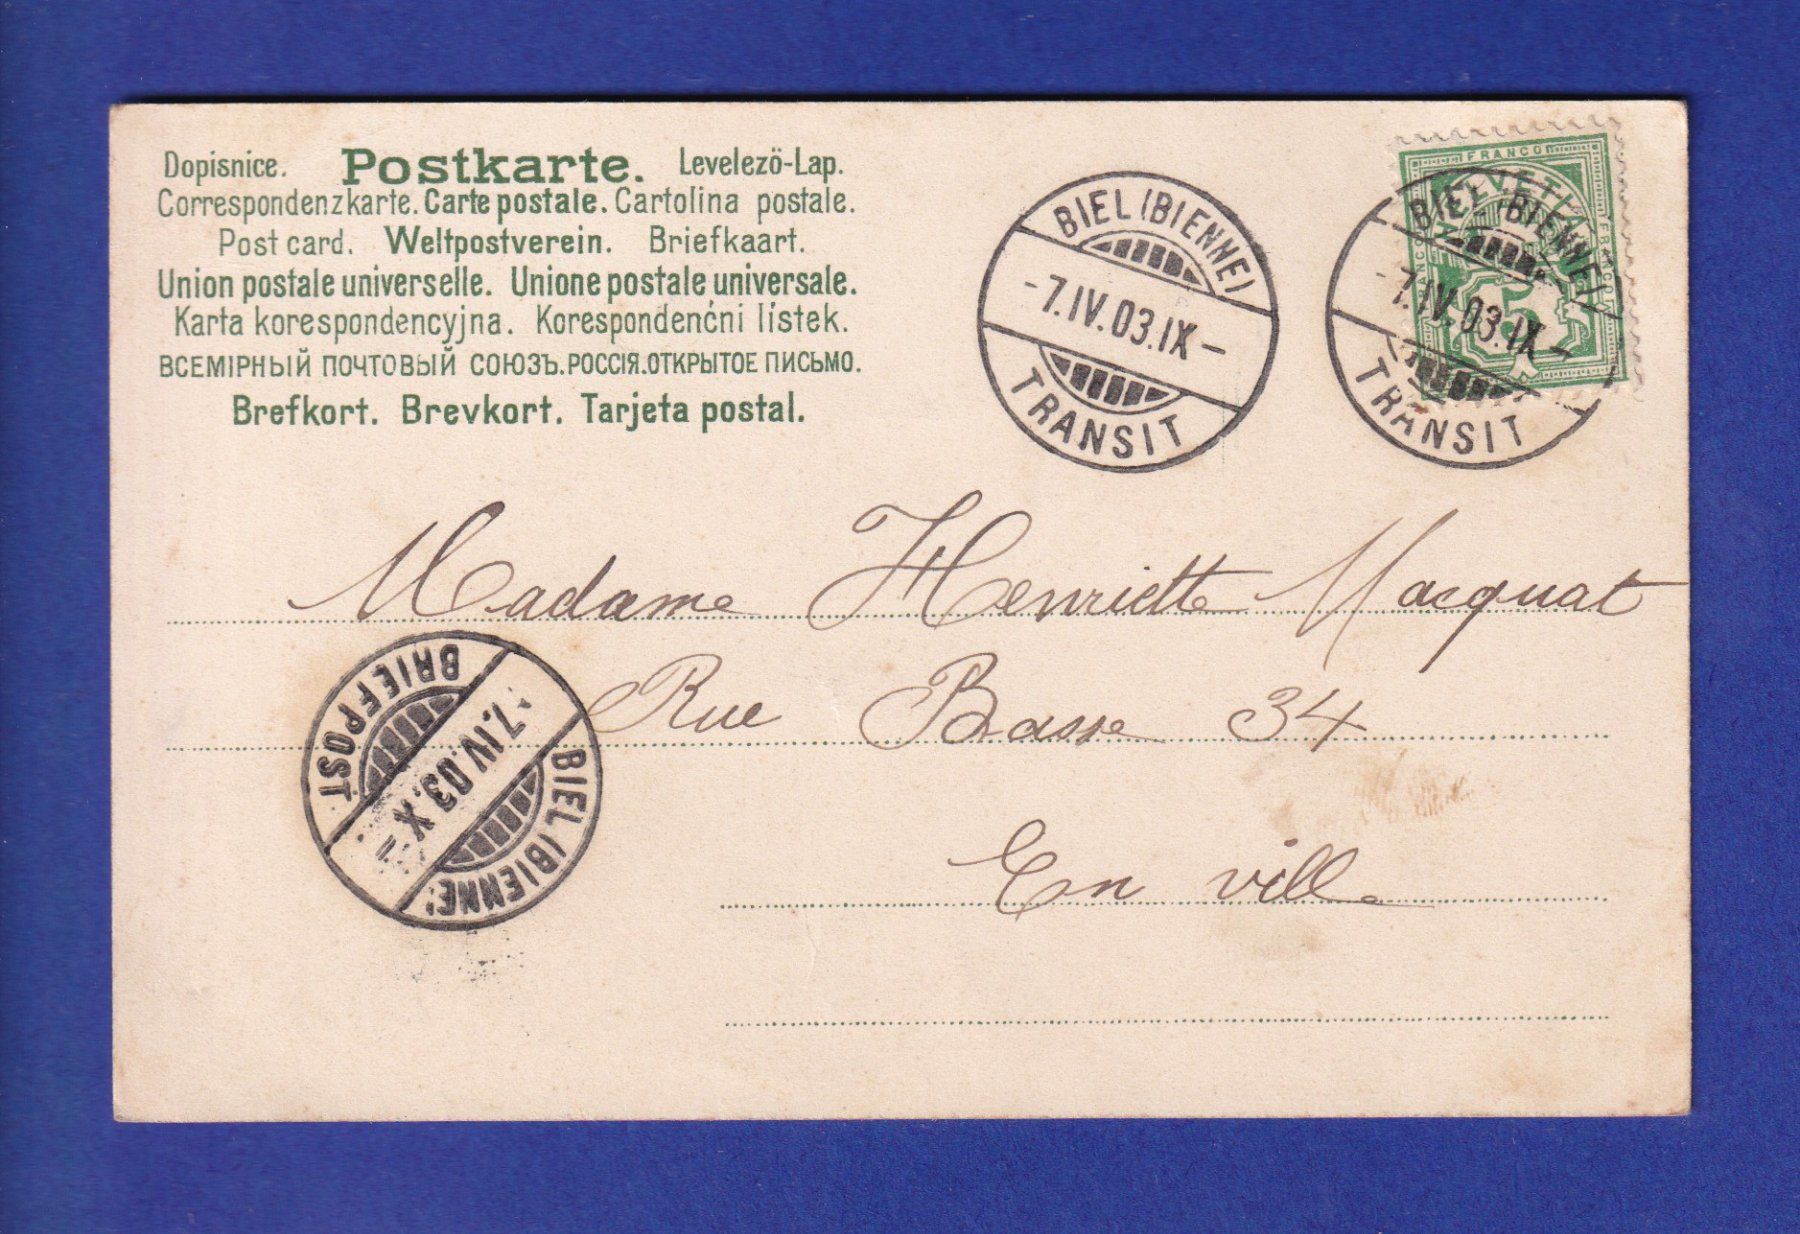 Dopisnice. Postkarte. Levelezö-Lap.
Correspondenzkarte. Carte postale. Cartolina postale.
Post card. Weltpostverein. Briefkaart.
Union postale universelle. Unione postale universale.
Karta korespondencyjna. Korespondenčni lístek.
ВСЕМІРНЫЙ ПОЧТОВЫЙ СОЮЗЪ.РОССІЯ.ОТКРЫТОЕ ПИСЬМО.
Brefkort. Brevkort. Tarjeta postal.
BIEL (BIENNE)
-7.IV.03.IX-
TRANSIT
FRANCO
HELVETIA
FRANCO
FRANCO
5
BIEL (BIENNE)
-7.IV.03.IX-
TRANSIT
Madame Henriette Macquat
Rue Basse 34
En ville
BIEL (BIENNE)
7.IV.03.X-
BRIEFPOST